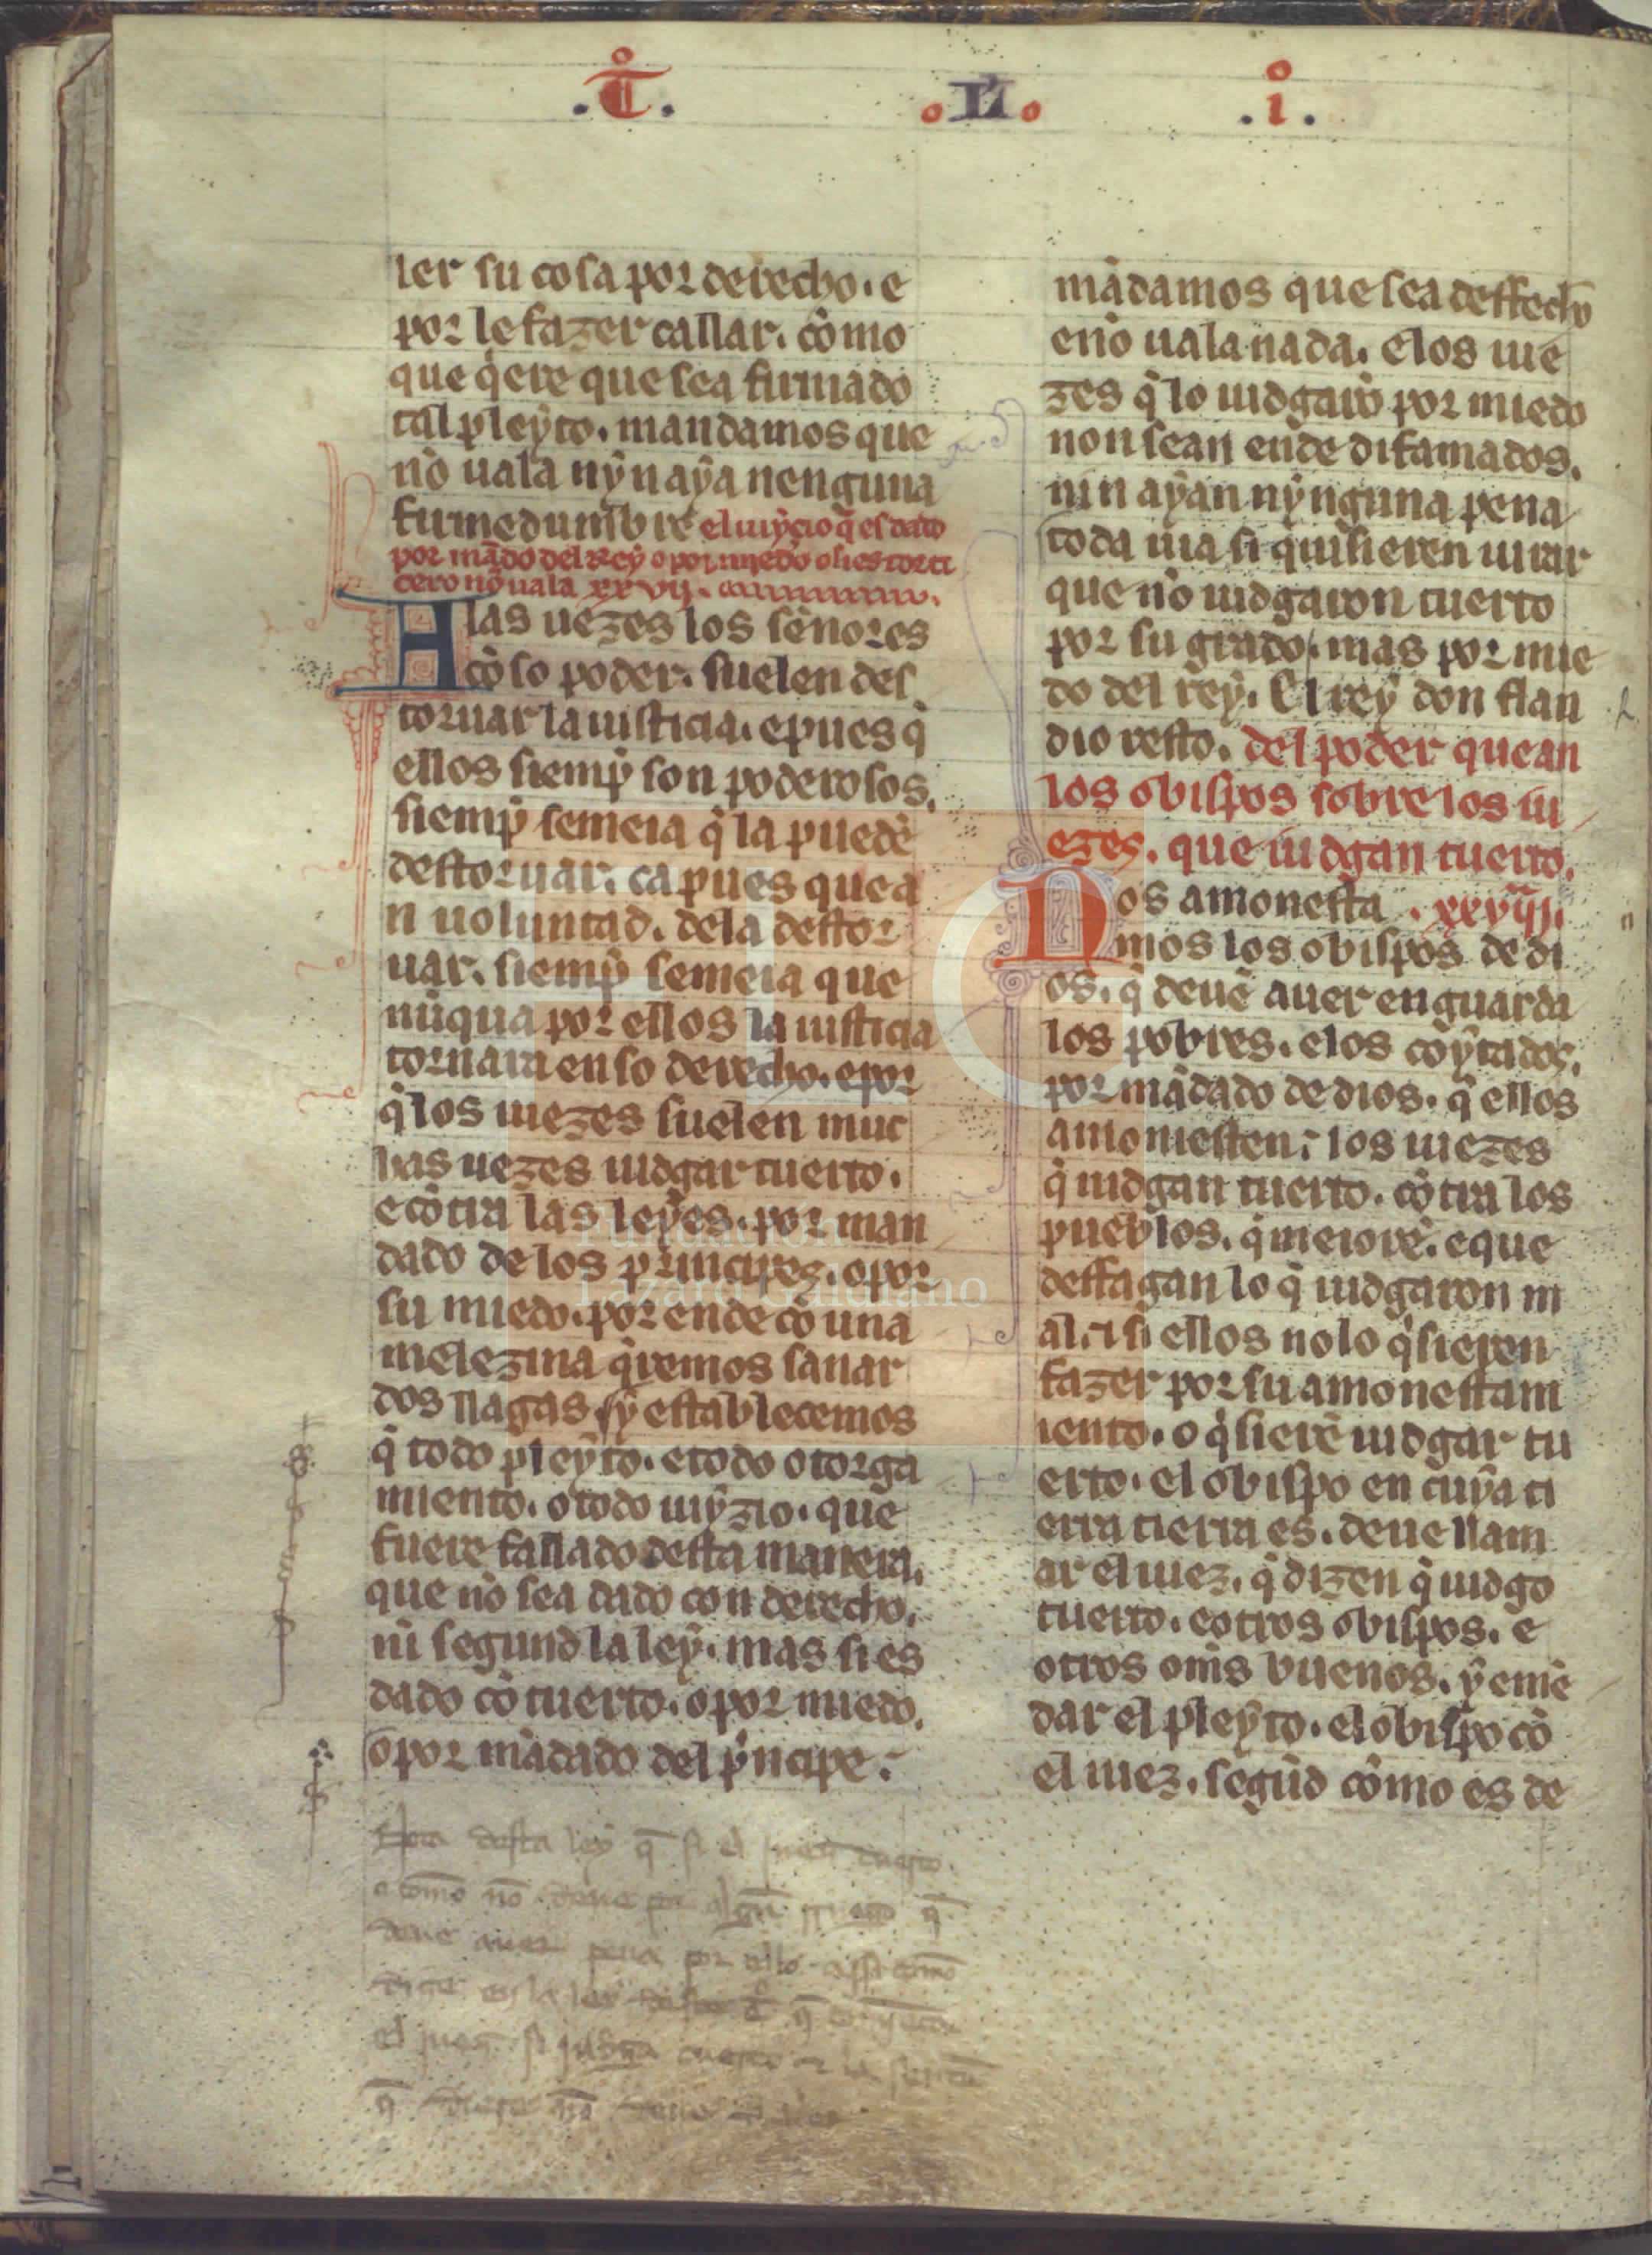 .T. .II. .i.
ler su cosa por derecho. e
por le fazer callar. cõmo
que q̃ere que sea firmado
tal pleyto. mandamos que
nõ uala nyn aya nenguna
firmedumbre el iuyçio q̃ es dado
por mãdo del Rey o por miedo o si es torti
cero nõ uala xxvij.
Alas uezes los señores
cõ so poder. suelen des
toruar la iusticia. e pues q̃
ellos siemp̃ son poderosos.
siemp̃ semeia q̃ la puedẽ
destoruar. ca pues que a
n uoluntad. de la destor
uar. siemp̃ semeia que
nũqua por ellos la iusticia
tornara en so derecho. e por
q̃ los iuezes suelen muc
has uezes iudgar tuerto.
e cõtra las leyes. por man
dado de los prıncipes. o por
su miedo. por ende cõ una
melezina q̃remos sanar
dos llagas sy establecemos
q̃ todo pleyto. e todo otorga
miento. o todo iuyzio. que
fuere fallado desta manera.
que nõ sea dado con derecho.
nĩ segund la ley. mas si es
dado cõ tuerto. o por miedo.
o por mãdado del p̃ncipe.
mãdamos que sea deffecho
e nõ uala nada. e los iue
zes q̃ lo iudgarõ por miedo
non sean ende difamados.
nin ayan nynguna pena
toda uia si quisieren iurar
que nõ iudgaron tuerto
por su grado. mas por mie
do del rey. El rey don flan
dio resto. del poder que an
los obispos sobre los iu
ezes. que iudgan tuerto.
Nos amonesta . xxviij.
mos los obispos de di
os. q̃ deuẽ auer en guarda
los pobres. e los coytados.
por mãdado de dios. q̃ ellos
amonesten. los iuezes
q̃ iudgan tuerto. cõtra los
pueblos. q̃ meiorẽ. e que
deffagan lo q̃ iudgaron m
al. e si ellos no lo q̃sieren
fazer por su amonestam
iento. o q̃sierẽ iudgar tu
erto. el obispo en cuya ti
erra tierra es. deue llam
ar el iuez. q̃ dizen q̃ iudgo
tuerto. e otros obispos. e
otros om̃s buenos. y emẽ
dar el pleyto. el obispo cõ
el iuez. segũd cõmo es de
desta ley q̃ si el
deue auer pena por ello assi como
dize en la ley
el juez si judga tuerto
Fundación
Lázaro Galdiano